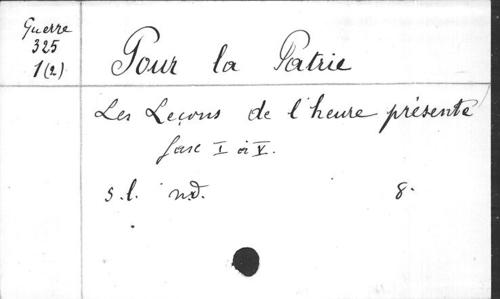 Guerre
325
1(2)
Pour la Patrie
Les Leçons de l'heure présente
fasc I à V.
s.l. n.d. 8.